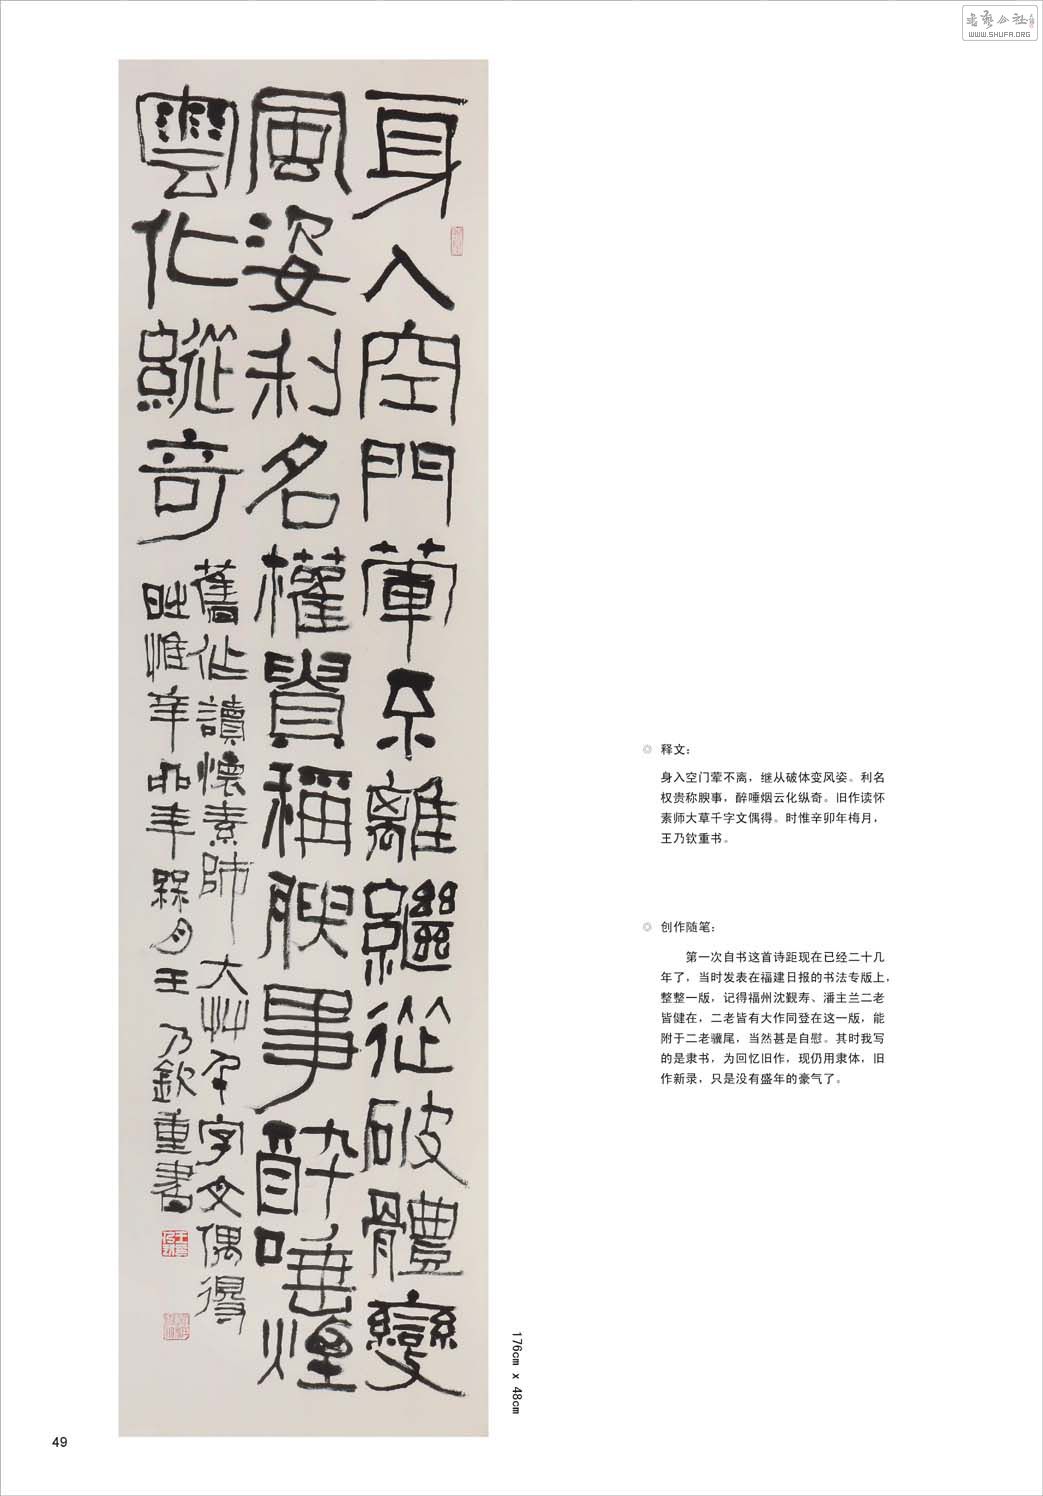 书艺公社
WWW.SHUFA.ORG
身入空門葷不離繼從破體變
風姿利名權貴稱腴事醉唾煙
雲化縱奇
舊作讀懷素師大艸千字文偶得
時惟辛卯年槑月王乃欽重書
176cm x 48cm
◎ 释文：
身入空门荤不离，继从破体变风姿。利名
权贵称腴事，醉唾烟云化纵奇。旧作读怀
素师大草千字文偶得。时惟辛卯年梅月，
王乃钦重书。
◎ 创作随笔：
第一次自书这首诗距现在已经二十几
年了，当时发表在福建日报的书法专版上，
整整一版，记得福州沈觐寿、潘主兰二老
皆健在，二老皆有大作同登在这一版，能
附于二老骥尾，当然甚是自慰。其时我写
的是隶书，为回忆旧作，现仍用隶体，旧
作新录，只是没有盛年的豪气了。
49